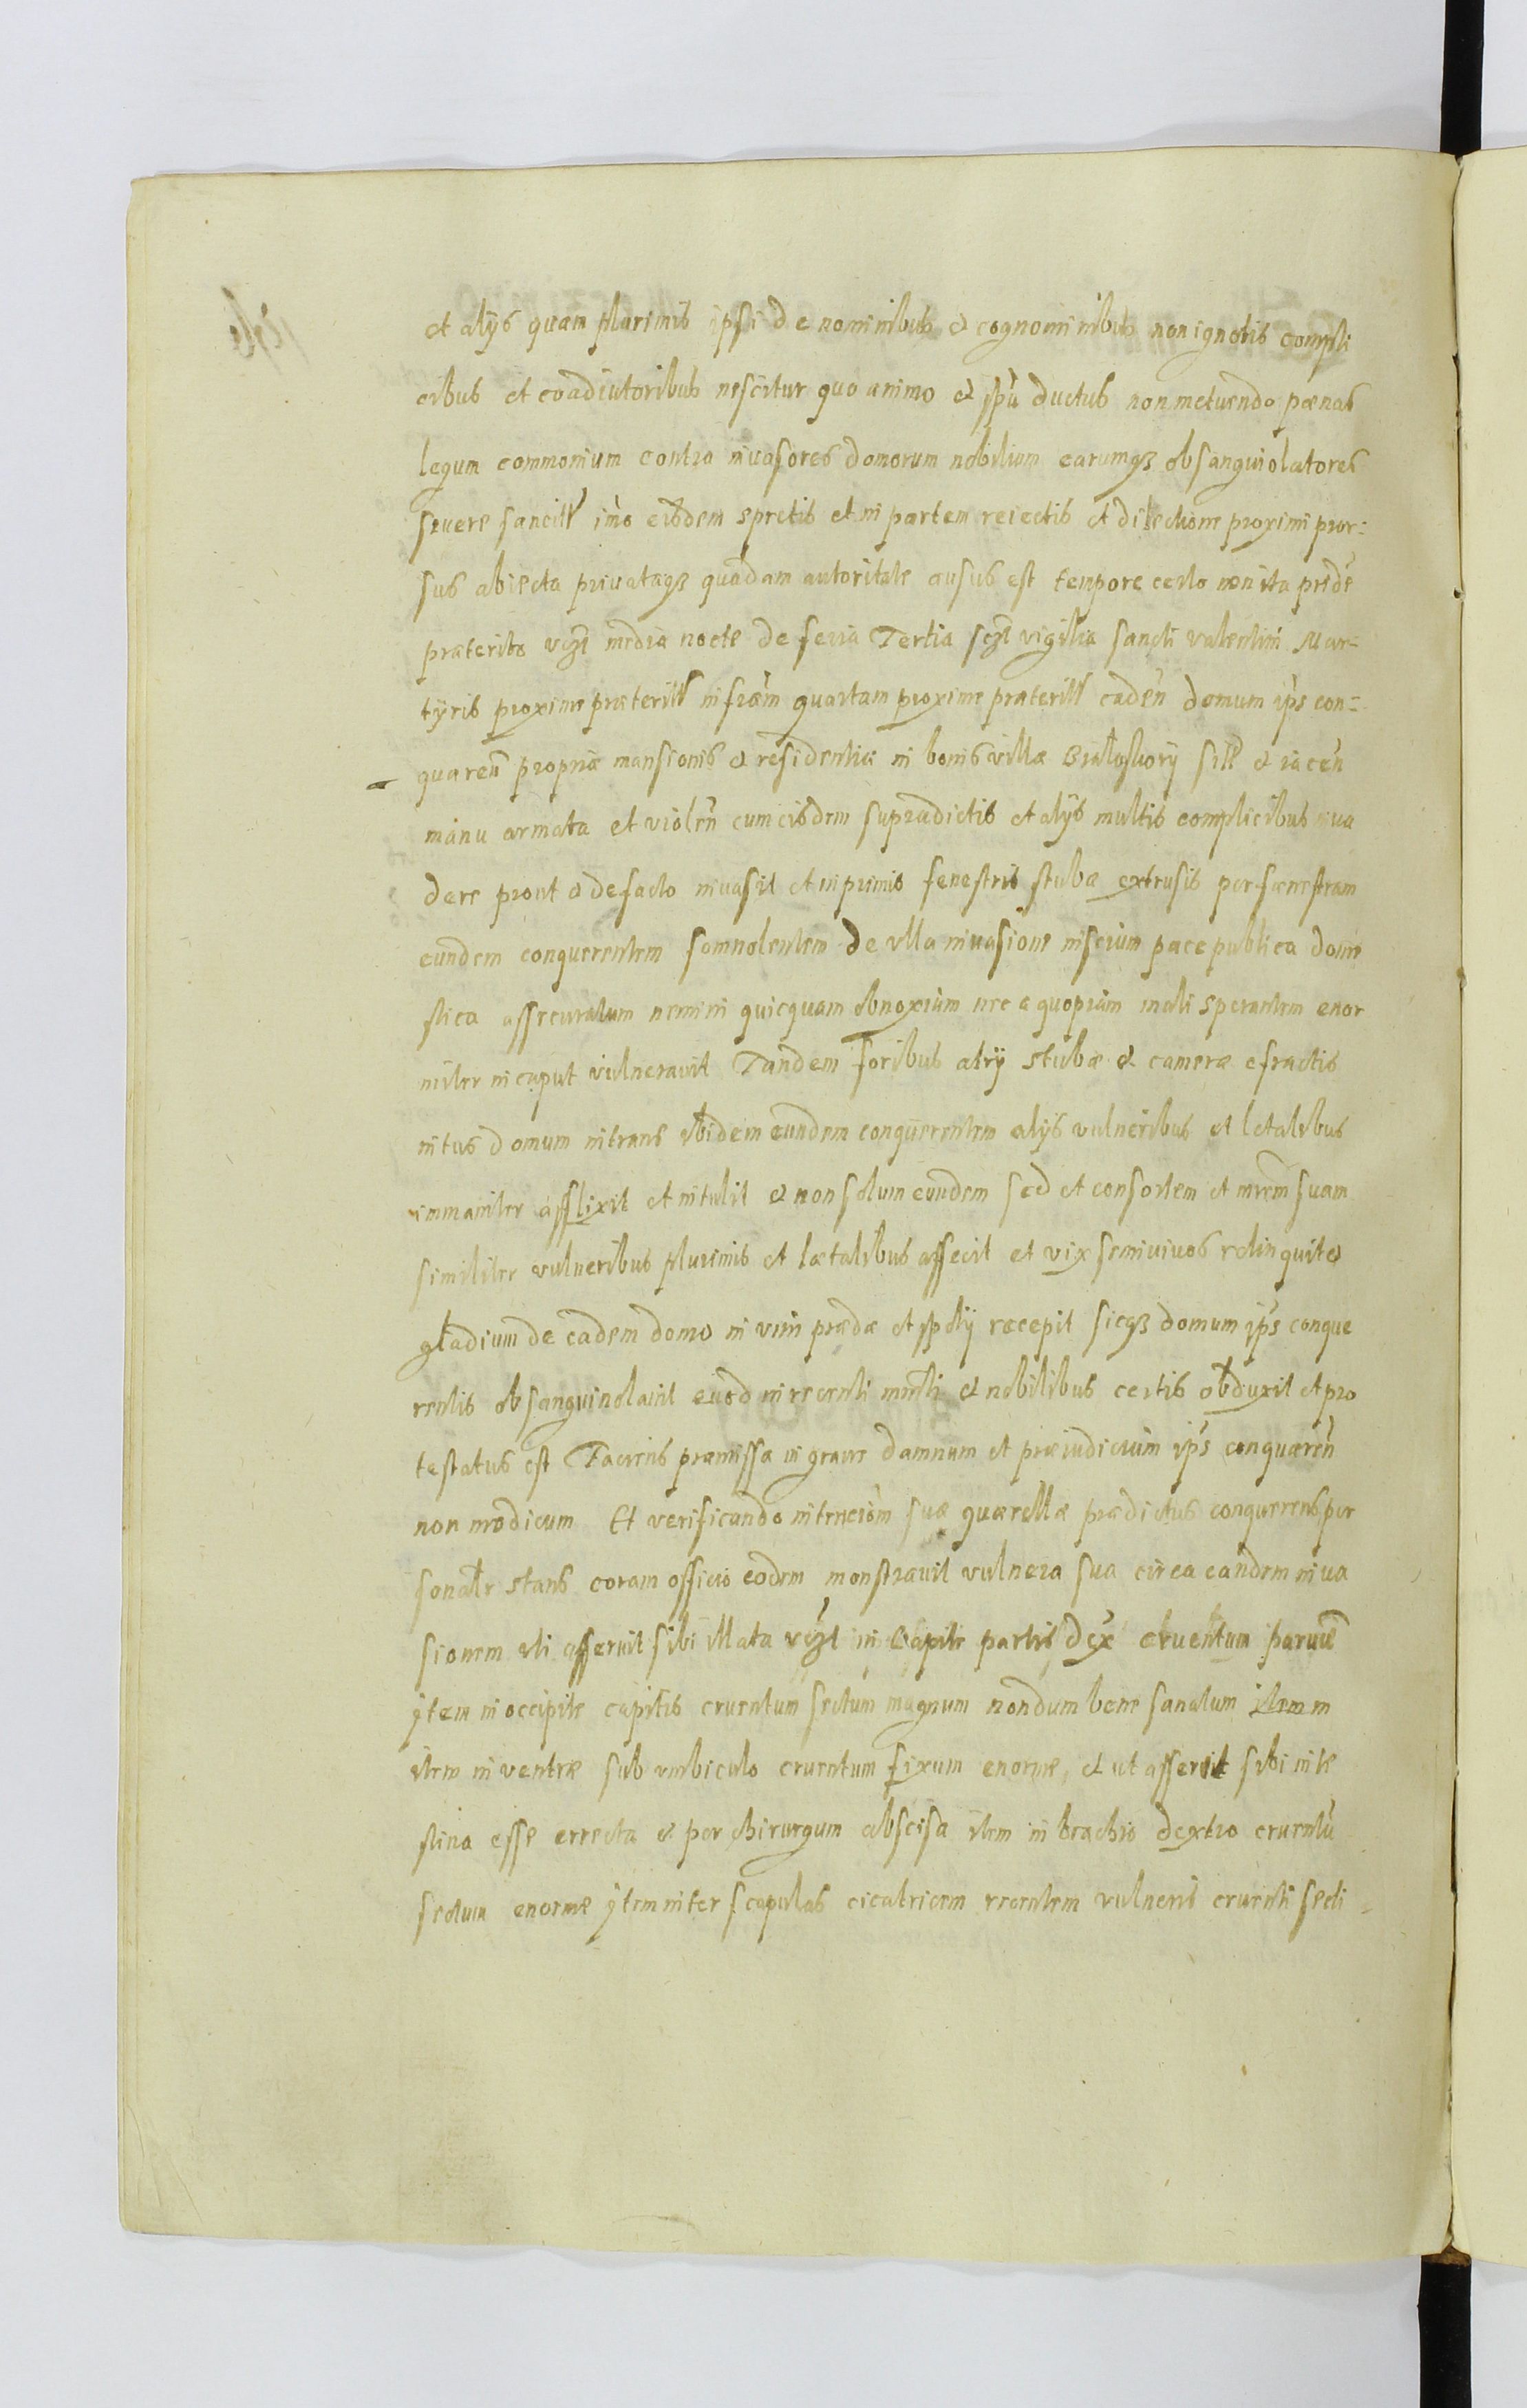 et alijs quam plurimis ipsi de nominibus et cognominibus non ignotis compli
cibus et coadiutoribus nescitur quo animo et spũ ductus non metuendo pœnas
legum commonium contra inuasores domorum nobilium earumqȝ obsanguiolatores
seuere sancitt imo eisdem spretis et in partem reiectis et dilectione proximi pror:
sus abiecta priuataqȝ quadam autoritate ausus est tempore certo non ita pride
præterito vczt media nocte de feria Tertia sczt vigilia sancti valentini Mar-
tyris proxime præteritt in fræm quartam proxime præteritt eadeñ domum ips con-
quæren̄ propriæ mansionis et residentiæ in bonis villæ sitt et iaceñ
manu armata et violeñ cum eisdem supradictis et alijs multis complicibus inua
dere prout et de facto inuasit et inprimis fenestris stubæ extrusis per fœnestram
eundem conquerentem somnolentem de vlla inuasione niscium pace publica dome
stica assecuratum nemini quicquam obnoxium nec a quopiam mali sperantem enor
miter in caput vulnerauit Tandem foribus atrij stubæ et cameræ efractis
intus domum intrans ibidem eundem conquerentem alijs vulneribus et letalibus
immaniter afflixit et intulit et non solum eundem sed et consortem et mrem suam
similiter vulneribus plurimis et lætalibus affecit et vix semiuiuos relinquit et
gladium de eadem domo in vim prædæ et spolij recepit sicqȝ domum ips conque
rentis obsanguinolauit euod in recenti mnli et nobilibus certis obduxit et pro
testatus est Faciens præmissa in graue damnum et præiudicium ips conquæreñ
non modicum Et verificando intencioñ suæ quærellæ prædictus conquerens per
sonalr stans coram officio eodem monstrauit vulnera sua circa eandem inua
sionem vti asseruit sibi illata vczt in Capite partis dex cruentum paruũ
ytem in occipite capitis cruentum sectum magnum nondum bene sanatum item in
item in ventræ sub vmbiculo cruentum fixum enorme, et ut asseruit sibi inte
stina esse errecta et per chirurgum abscisa item in brachio dextro cruentũ
sectum enorme ytem inter scapulas cicatricem recentem vulneris cruenti secti-